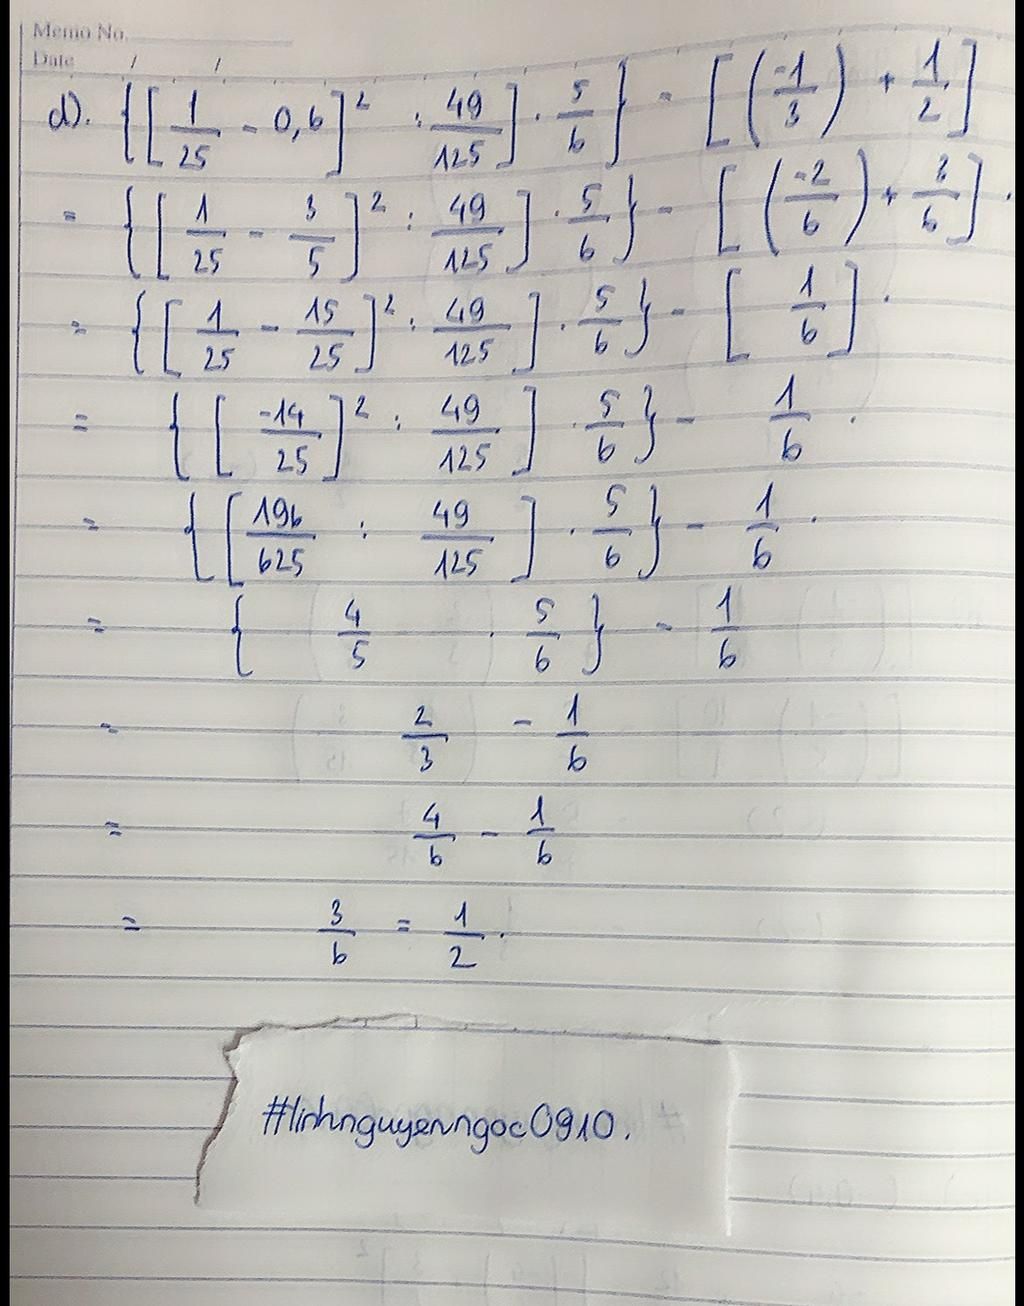 Memo No.
Date / /
d). {[[1/25 - 0,6]² : 49/125] . 5/6} - [(-1/3) + 1/2]
= {[[1/25 - 3/5]² : 49/125] . 5/6} - [(-2/6) + 3/6].
= {[[1/25 - 15/25]² : 49/125] . 5/6} - [1/6].
= {[[-14/25]² : 49/125] . 5/6} - 1/6.
= {[196/625 : 49/125] . 5/6} - 1/6.
= {4/5 . 5/6} - 1/6
= 2/3 - 1/6
= 4/6 - 1/6
= 3/6 = 1/2.
#linhnguyenngoc0910.